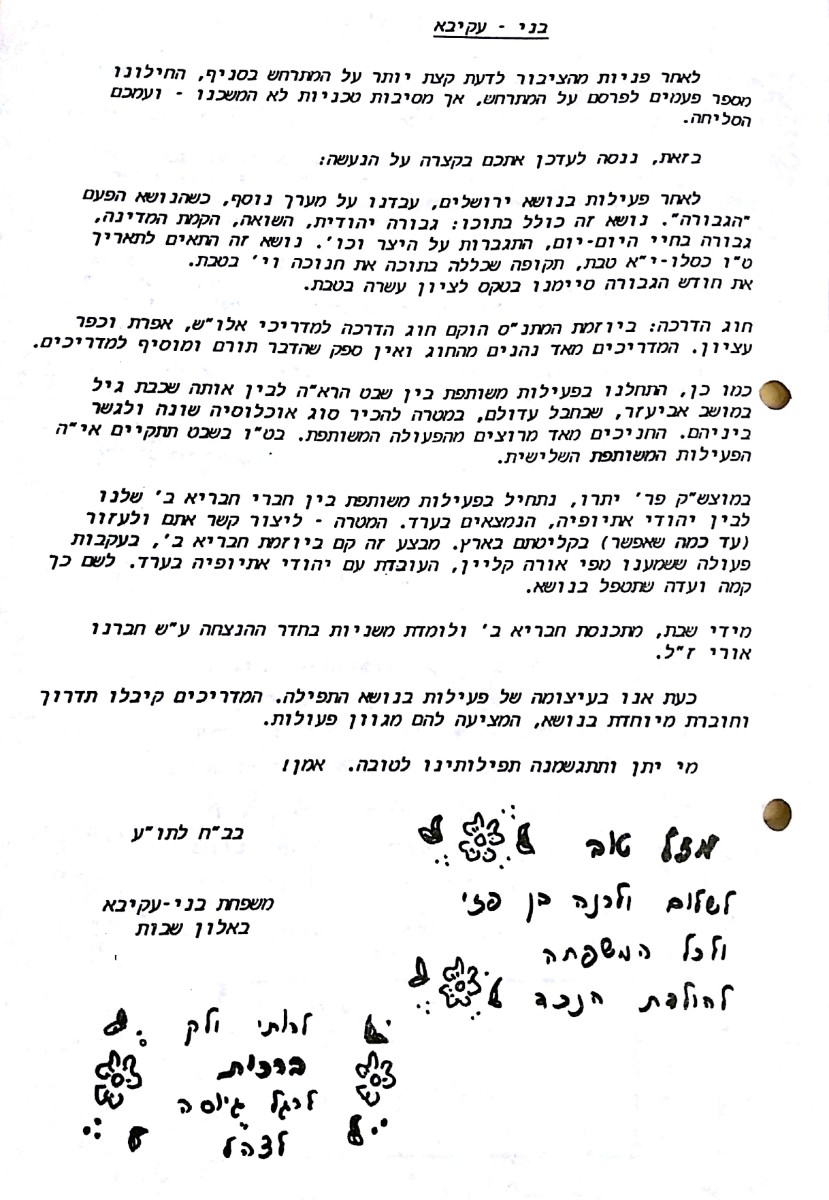 בני - עקיבא
לאחר פניות מהציבור לדעת קצת יותר על המתרחש בסניף, החילונו
מספר פעמים לפרסם על המתרחש, אך מסיבות טכניות לא המשכנו - ועמכם
הסליחה.
בזאת, ננסה לעדכן אתכם בקצרה על הנעשה:
לאחר פעילות בנושא ירושלים, עבדנו על מערך נוסף, כשהנושא הפעם
"הגבורה". נושא זה כולל בתוכו: גבורה יהודית, השואה, הקמת המדינה,
גבורה בחיי היום-יום, התגברות על היצר וכו'. נושא זה התאים לתאריך
ט"ו כסלו-י"א טבת, תקופה שכללה בתוכה את חנוכה וי' בטבת.
את חודש הגבורה סיימנו בטקס לציון עשרה בטבת.
חוג הדרכה: ביוזמת המתנ"ס הוקם חוג הדרכה למדריכי אלו"ש, אפרת וכפר
עציון. המדריכים מאד נהנים מהחוג ואין ספק שהדבר תורם ומוסיף למדריכים.
כמו כן, התחלנו בפעילות משותפת בין שבט הרא"ה לבין אותה שכבת גיל
במושב אביעזר, שבחבל עדולם, במטרה להכיר סוג אוכלוסיה שונה ולגשר
ביניהם. החניכים מאד מרוצים מהפעולה המשותפת. בט"ו בשבט תתקיים אי"ה
הפעילות המשותפת השלישית.
במוצש"ק פר' יתרו, נתחיל בפעילות משותפת בין חברי חבריא ב' שלנו
לבין יהודי אתיופיה, הנמצאים בערד. המטרה - ליצור קשר אתם ולעזור
(עד כמה שאפשר) בקליטתם בארץ. מבצע זה קם ביוזמת חבריא ב', בעקבות
פעולה ששמענו מפי אורה קליין, העובדת עם יהודי אתיופיה בערד. לשם כך
קמה ועדה שתטפל בנושא.
מידי שבת, מתכנסת חבריא ב' ולומדת משניות בחדר ההנצחה ע"ש חברנו
אורי ז"ל.
כעת אנו בעיצומה של פעילות בנושא התפילה. המדריכים קיבלו תדרוך
וחוברת מיוחדת בנושא, המציעה להם מגוון פעולות.
מי יתן ותתגשמנה תפילותינו לטובה. אמן!
בב"ח לתו"ע
משפחת בני-עקיבא
באלון שבות
מזל טוב
לשלום ולרנה בן פזי
ולכל המשפחה
להולדת הנכד
לרותי ולק
ברכות
לרגל גיוסה
לצהל